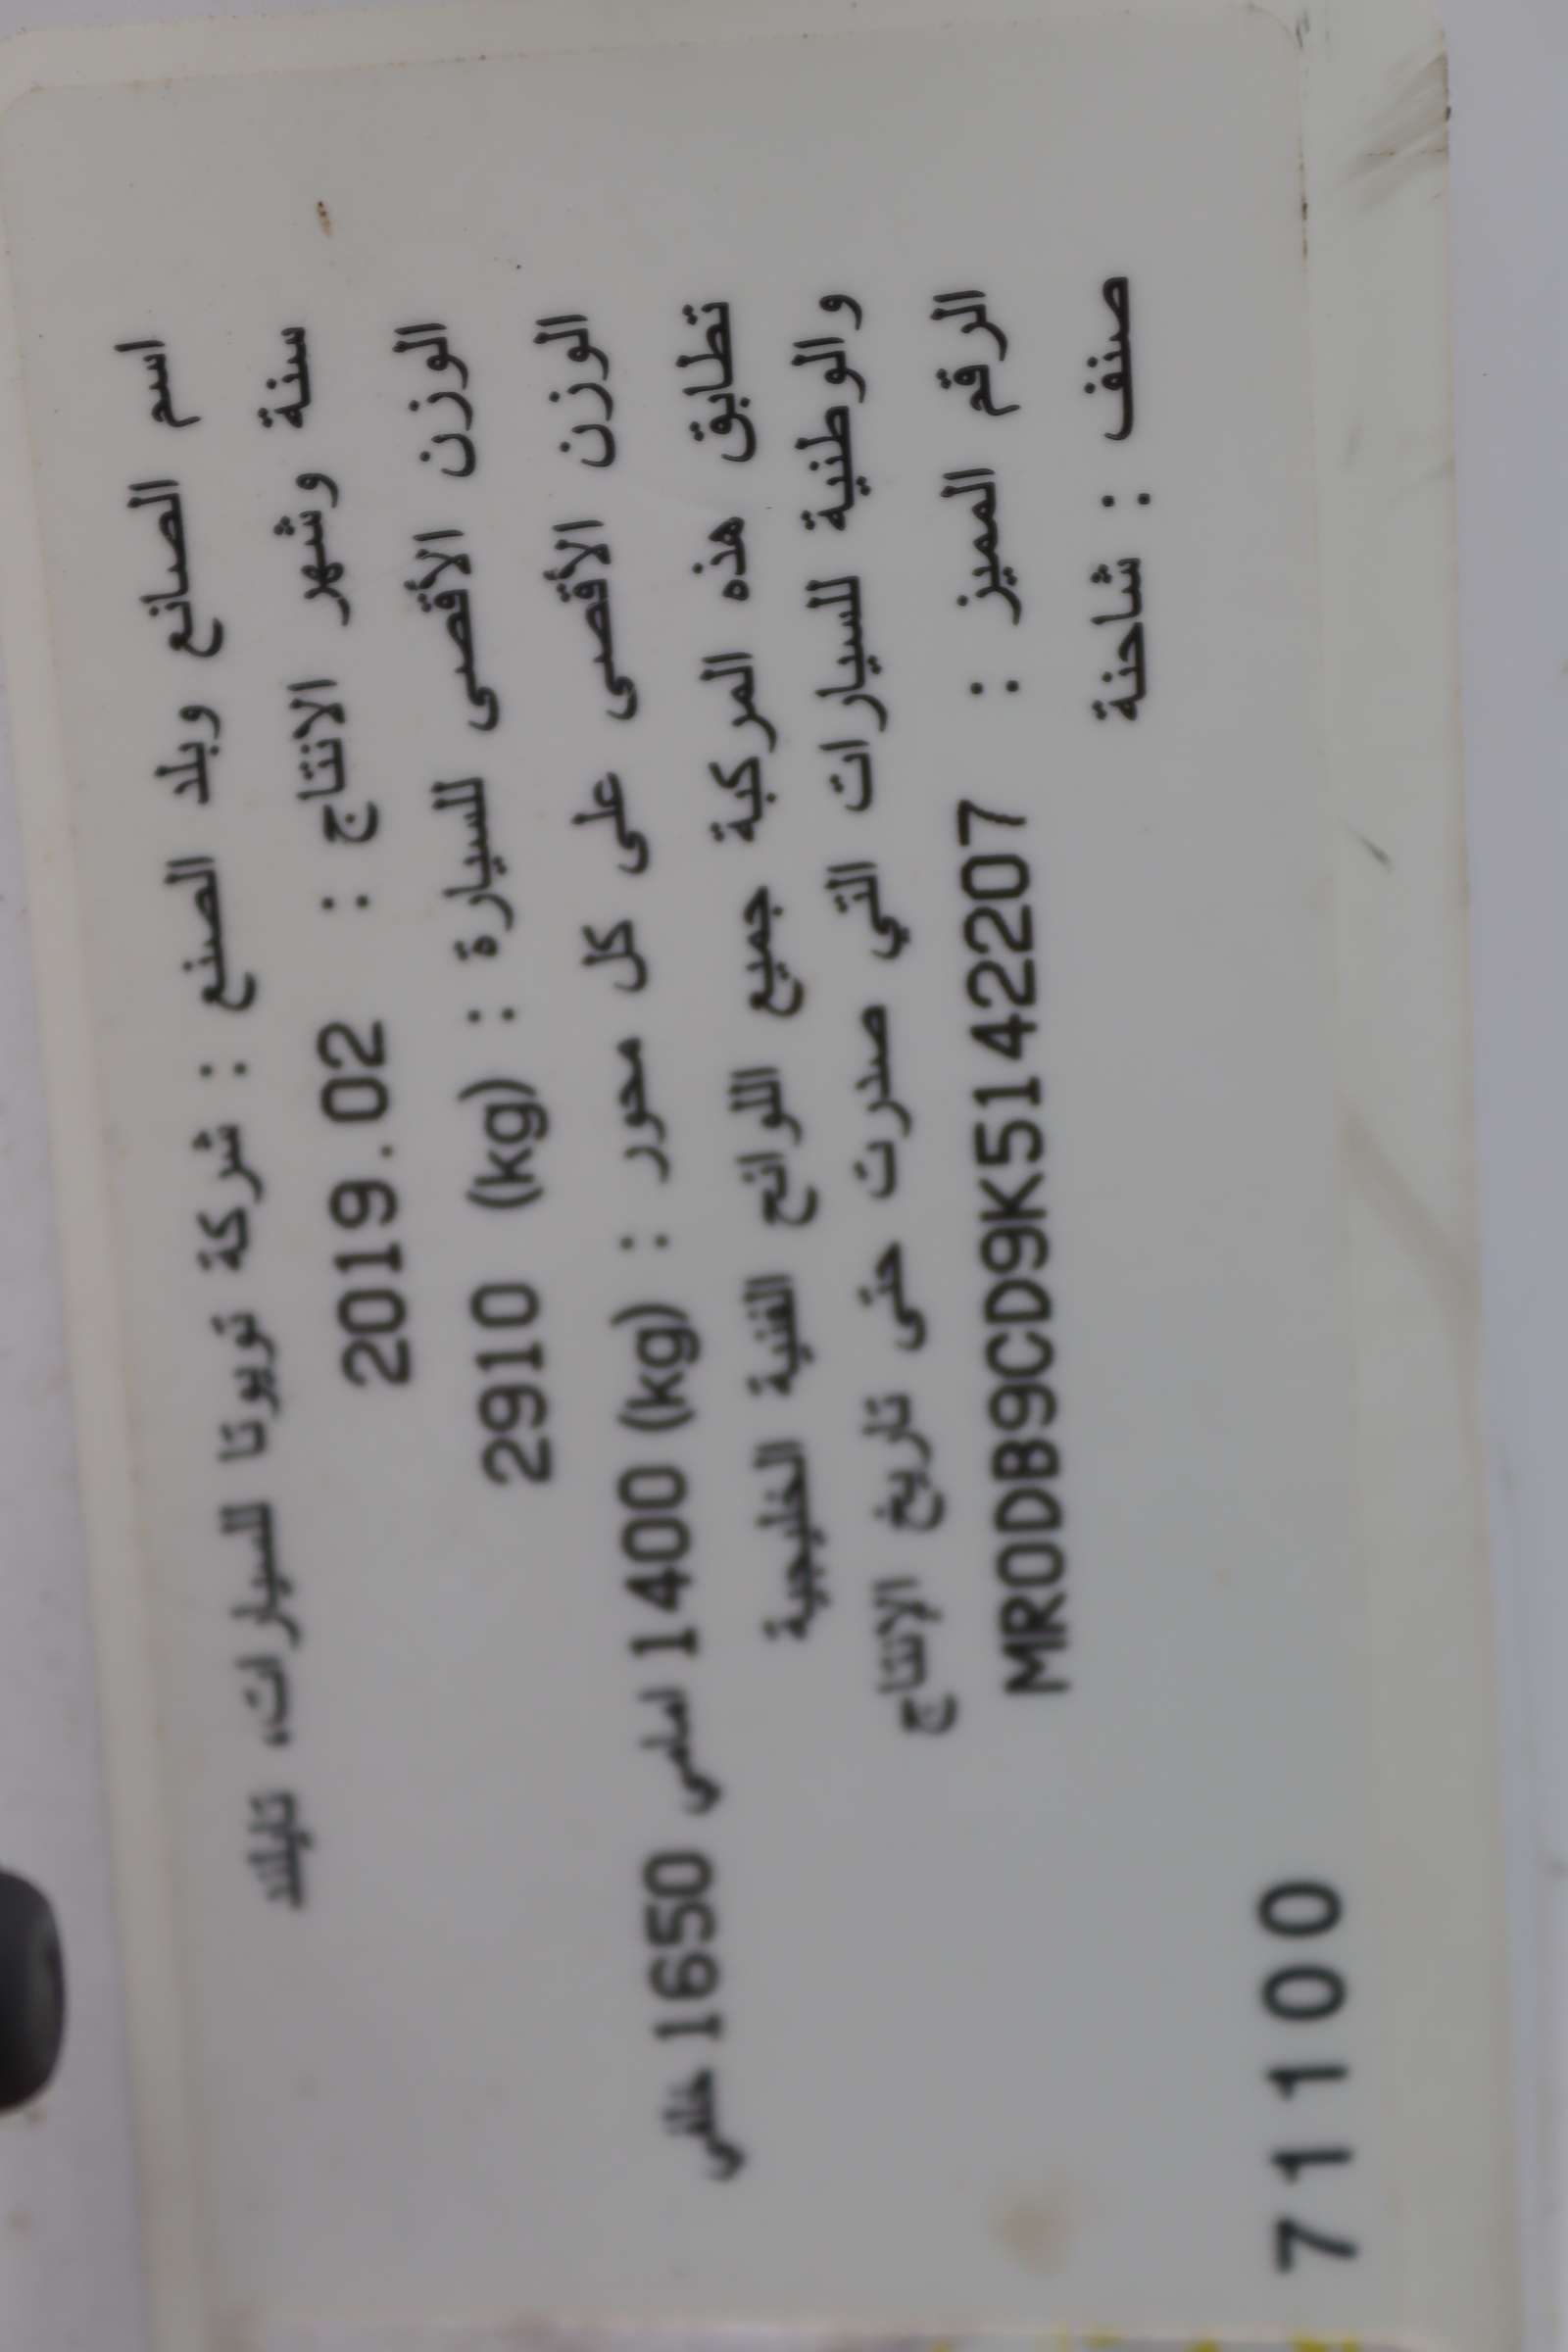 اسم الصانع وبلد الصنع : شركة تويوتا للسيارات، تايلاند
سنة وشهر الانتاج : 2019.02
الوزن الأقصى للسيارة : (kg) 2910
الوزن الأقصى على كل محور : (kg) 1400 امامي 1650 خلفي
تطابق هذه المركبة جميع اللوائح الفنية الخليجية
والوطنية للسيارات التي صدرت حتى تاريخ الإنتاج
الرقم المميز : MR0DB9CD9K5142207
صنف : شاحنة
71100